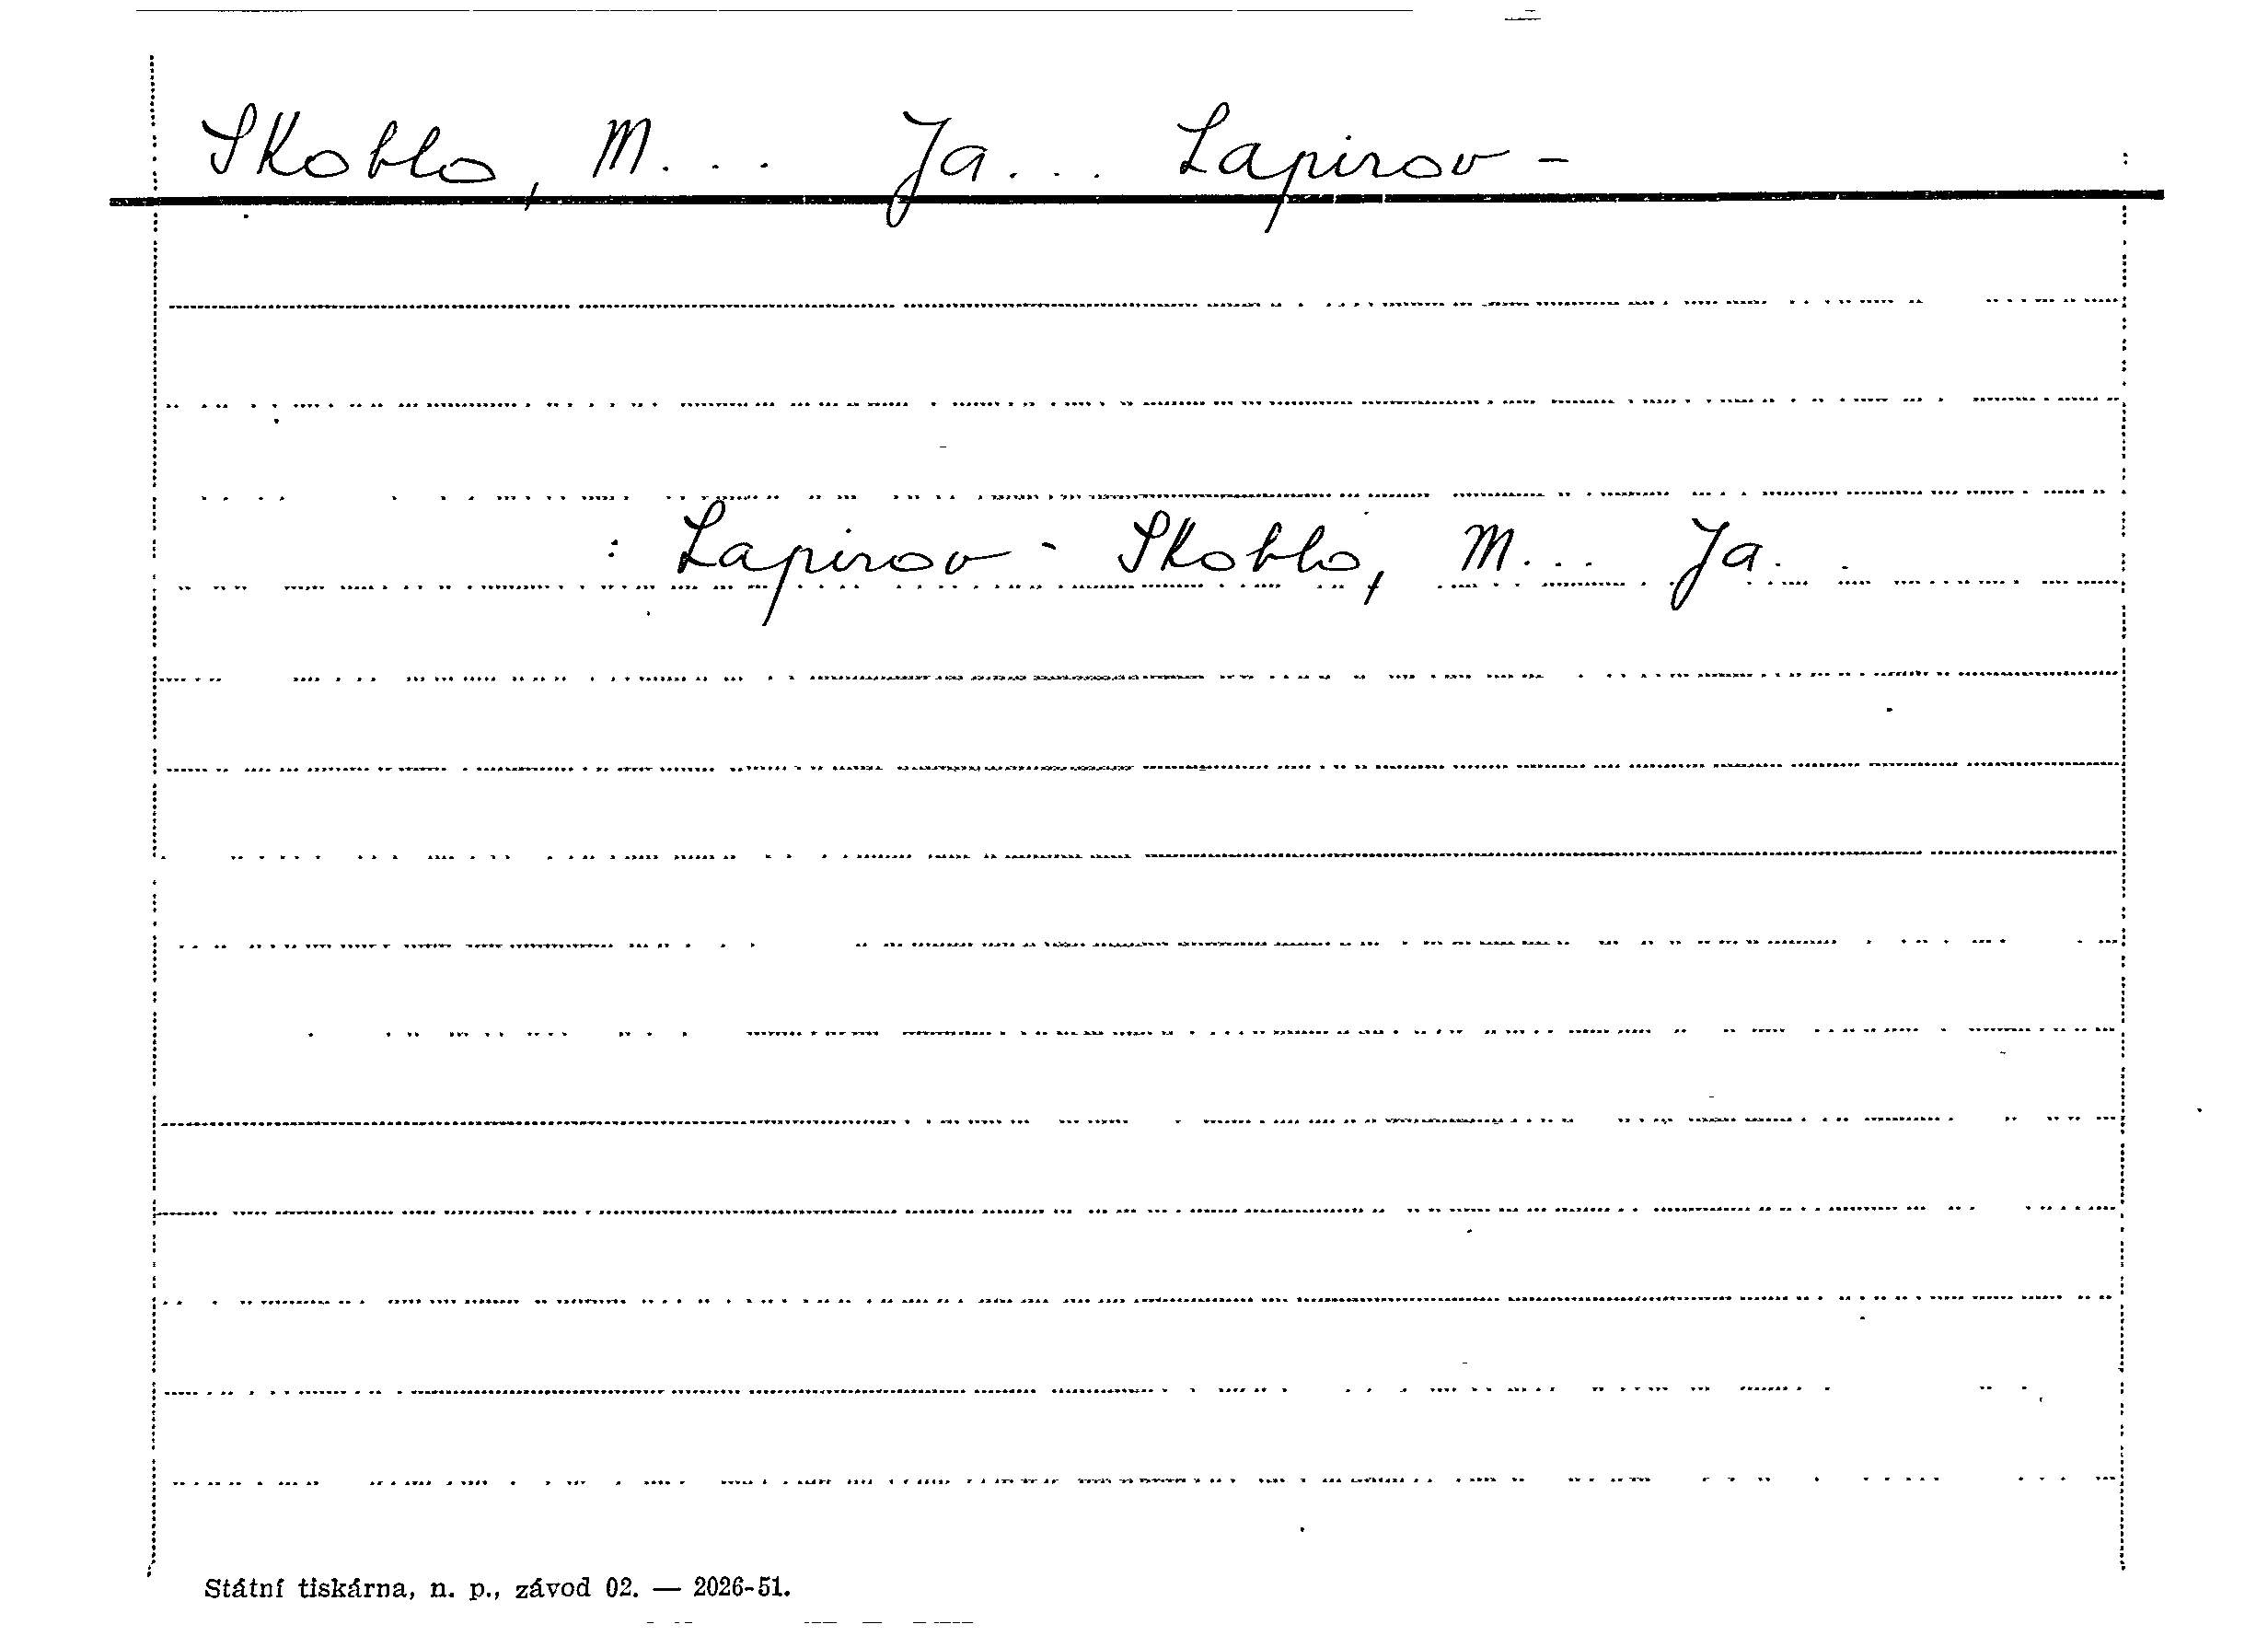 Skoblo, M... Ja... Lapirov -
: Lapirov - Skoblo, M... Ja...
Státní tiskárna, n. p., závod 02. — 2026-51.